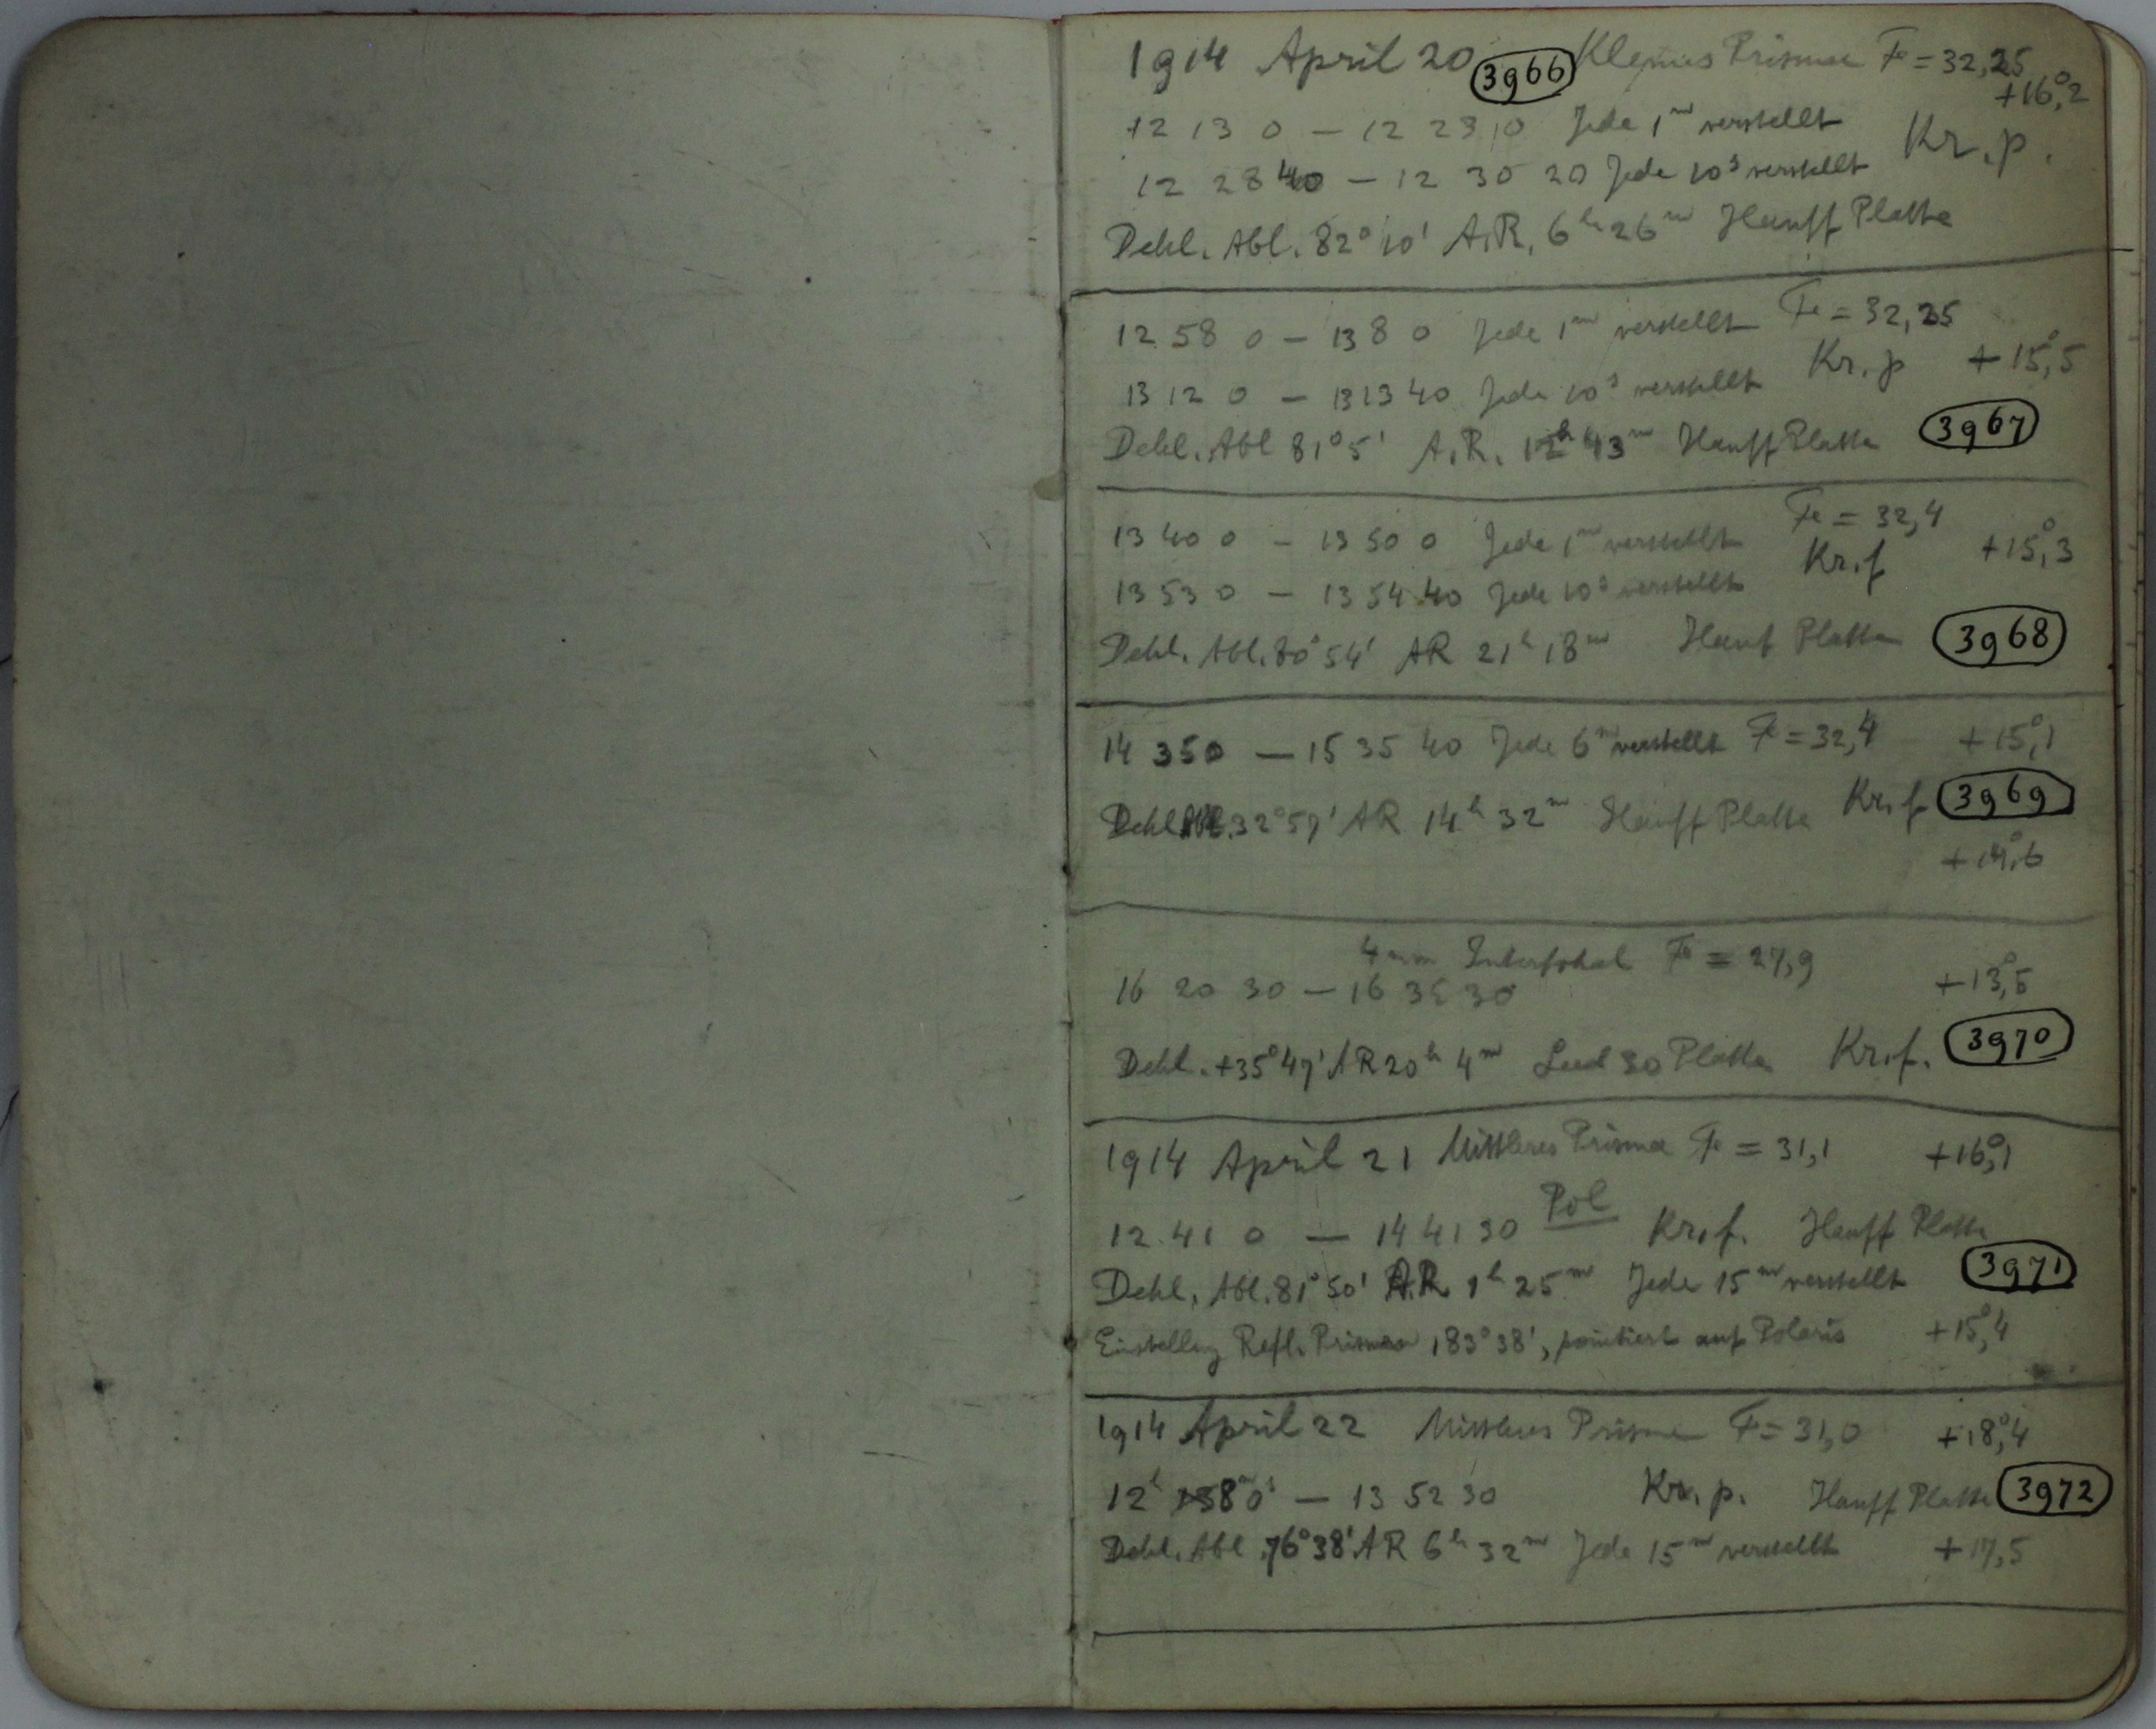 1914 April 20 3966 Kleines Prisma F = 32,25
+16°,2
12 13 0 — 12 23 0 Jede 1m verstellt
Kr. p.
12 28 40 — 12 30 20 Jede 10s verstellt
Dekl. Abl. 82° 10' A.R. 6h 26m Hauff Platte
12 58 0 — 13 8 0 Jede 1m verstellt F = 32,25
Kr. p + 15°,5
13 12 0 — 13 13 40 Jede 10s verstellt
Dekl. Abl 81° 5' A.R. 12h 43m Hauff Platte 3967
F = 32,4
13 40 0 — 13 50 0 Jede 1m verstellt
Kr. f +15°,3
13 53 0 — 13 54 40 Jede 10s verstellt
Dekl. Abl. 80° 54' AR 21h 18m Hauf Platte 3968
14 35 0 — 15 35 40 Jede 6m verstellt F = 32,4 +15°,1
Dekl. Abl. 32° 57' AR 14h 32m Hauff Platte Kr. f 3969
+14°,6
4 mm Intrafokal F = 27,9
16 20 30 — 16 35 30 +13°,5
Dekl. +35° 47' AR 20h 4m Platte Kr. f. 3970
1914 April 21 Mittleres Prisma F = 31,1 +16°,1
12 41 0 — 14 41 30 Pol Kr. f. Hauff Platte
Dekl. Abl. 81° 50' A.R. 1h 25m Jede 15m verstellt 3971
Einstellung Refl. Prisma 183° 38', pointiert auf Polaris +15°,4
1914 April 22 Mittleres Prisma F = 31,0 +18°,4
12h 8m 0s — 13 52 30 Kr. p. Hauff Platte 3972
Dekl. Abl. 76° 38' AR 6h 32m Jede 15m verstellt +17,5